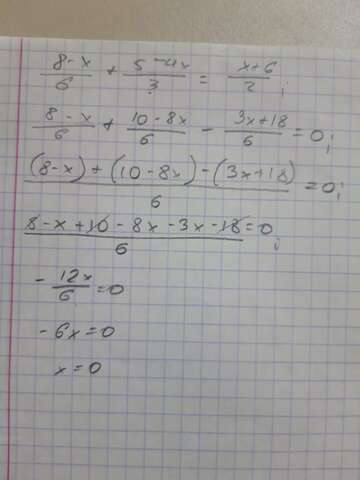 (8-x)/6 + (5-4x)/3 = (x+6)/2;
(8-x)/6 + (10-8x)/6 - (3x+18)/6 = 0;
((8-x)+(10-8x)-(3x+18))/6 = 0;
(8-x+10-8x-3x-18)/6 = 0;
-12x/6 = 0
-6x=0
x=0